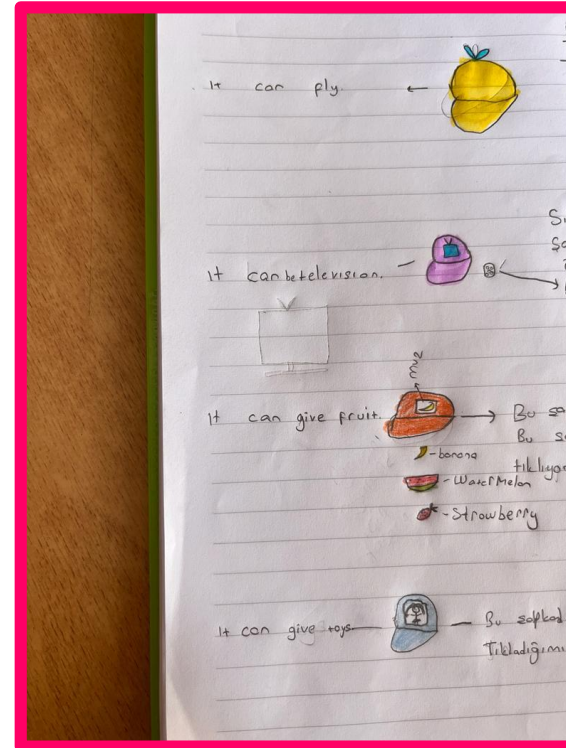 It can fly.
It can be television.
It can give fruit.
muz
Bu
Bu
tıklıyo
-banana
-Watermelon
-Strawberry
It can give toys.
Bu şapkad
Tıkladığımı